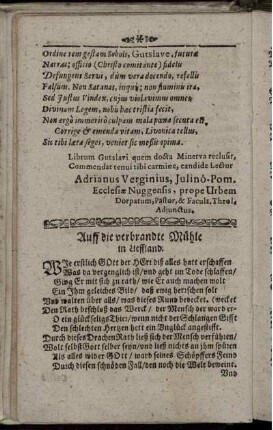 Ordine rem gestam Solvis, Gutslave, futura
Narras; officio (Christo comitante) fideli
Defungens Servi, dum vera docendo, refellis
Falsum. Non Satanas, inquis; non fluminis ira,
Sed Justus Vindex, cujus violevimus omnes
Divinam Legem, nobis haec tristia fecit.
Non ergo immerito culpam mala paena secuta est,
Corrige & emenda vitam, Livonica tellus,
Sic tibi laeta seges, veniet sic messis opima.
Librum Gutslavi quem docta Minerva reclusit,
Commendat tenui tibi carmine, candide Lector
Adrianus Verginius, Julinô-Pom.
Ecclesiae Nuggensis, prope Urbem
Dorpatum, Pastor, & Facult, Theol,
Adjunctus.
Auff die verbrandte Mühle
in Liefflland.
WIe erstlich GOtt der HErr diß alles hatt erschaffen
Was da vergenglich ist/ und geht im Tode schlaffen/
Ging Er mit sich zu rath/ wie Er auch machen wolt
Ein Ihm geleiches Bild/ daß ewig herrschen solt
Und walten über alls/ was dieses Rund bedecket. (wecket
Den Rath beschloß das Werck/ der Mensch der ward er-
O ein glückseligs Thier/ wenn nicht der Schlangen Gifft
Den schlechten Hertzen hett ein Unglück angestifft.
Durch dieses Drachen Rath ließ sich der Mensch verführen/
Wolt selbst Gott selber seyn/ und ließ nichts an ihm spüren
Als alles wider Gott/ ward seines Schöpffers Feind
Durch diesen schnöden Fall/ den noch die Welt beweint.
Und